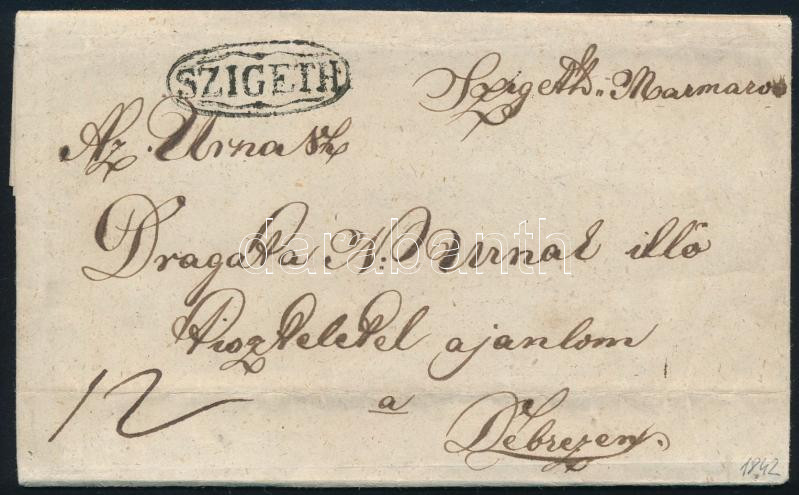 SZIGETH
Szigeth „ Marmaros
Az Urnak
Dragota A: Urnak illö
tiszteletel ajanlom
a
12
Debrezen.
1842
darabanth